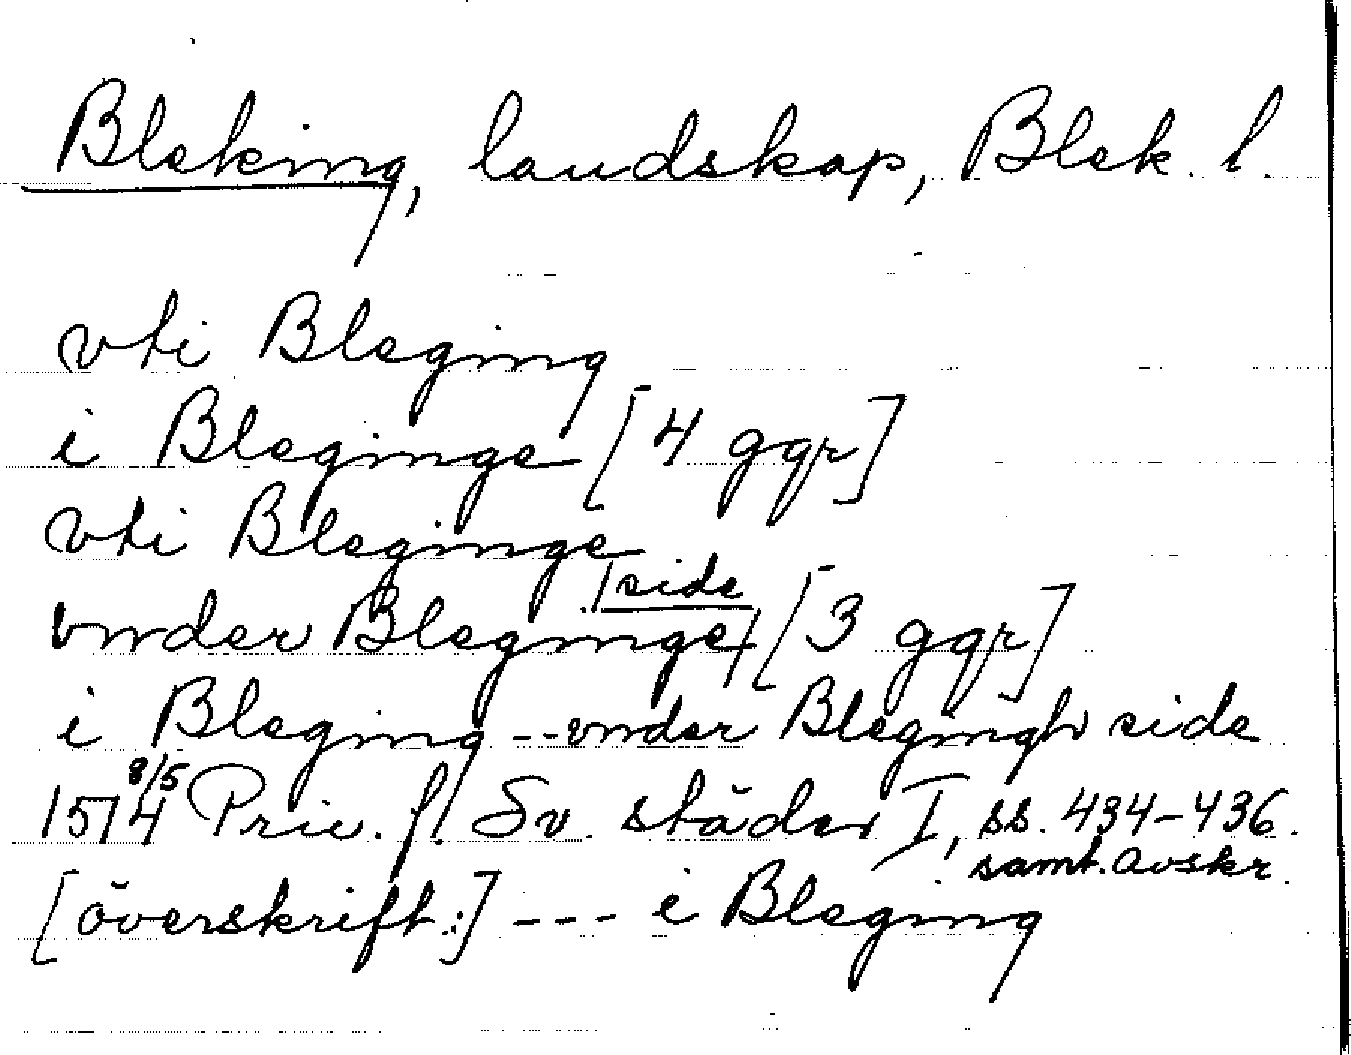 Bleking, landskap, Blek. l.
vti Bleging
i Bleginge [4 ggr]
vti Bleginge
side
vnder Bleginge [3 ggr]
i Bleging --vnder Blegingh side
1574 8/5 Priv. f. Sv. städer I, ss. 434-436.
samt. avskr.
[överskrift:] --- i Bleging